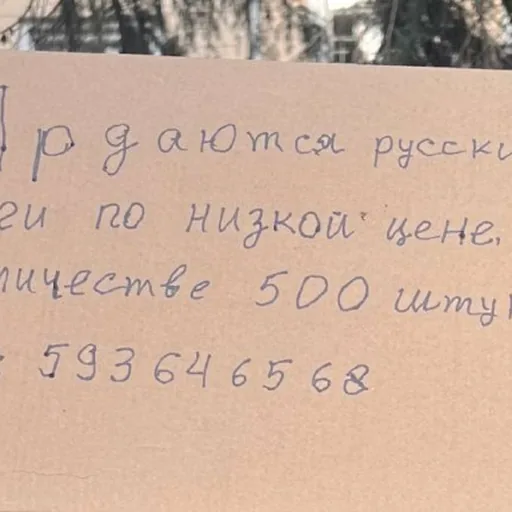 Прдаются русски
ги по низкой цене.
личестве 500 штук
: 593 64 65 68